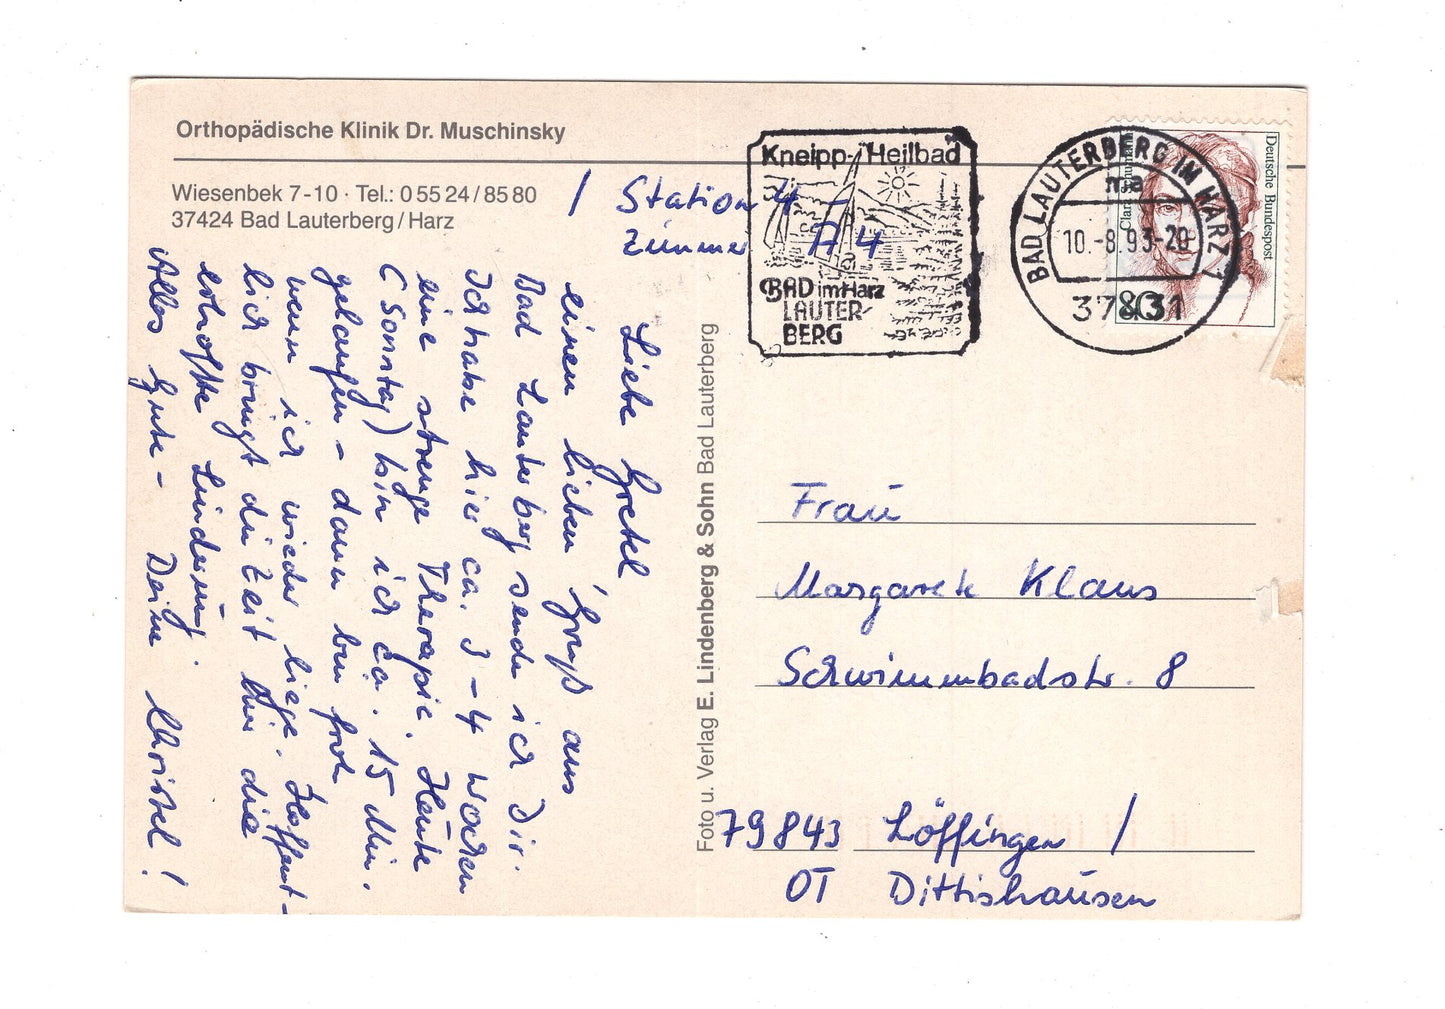 Orthopädische Klinik Dr. Muschinsky
Wiesenbek 7-10 · Tel.: 0 55 24 / 85 80
37424 Bad Lauterberg/Harz
/ Station 4 -
Zimmer A 4
Liebe Gretel
einen lieben Gruß aus
Bad Lauterberg sende ich Dir.
Ich habe hier ca. 3-4 Wochen
eine strenge Therapie. Heute
(Sonntag) bin ich ca. 15 Min.
gelaufen - dann bin froh
wenn ich wieder liege. Hoffent-
lich bringt die Zeit hier die
erhoffte Linderung.
Alles Gute - Deine Christel!
Foto u. Verlag E. Lindenberg & Sohn Bad Lauterberg
Kneipp-Heilbad
BAD im Harz
LAUTER-
BERG
BAD LAUTERBERG IM HARZ 1
ma
10.-8.93-20
37431
Deutsche Bundespost
Clara Schumann
80
Frau
Margarete Klaus
Schwimmbadstr. 8
79843 Löffingen /
OT Dittishausen